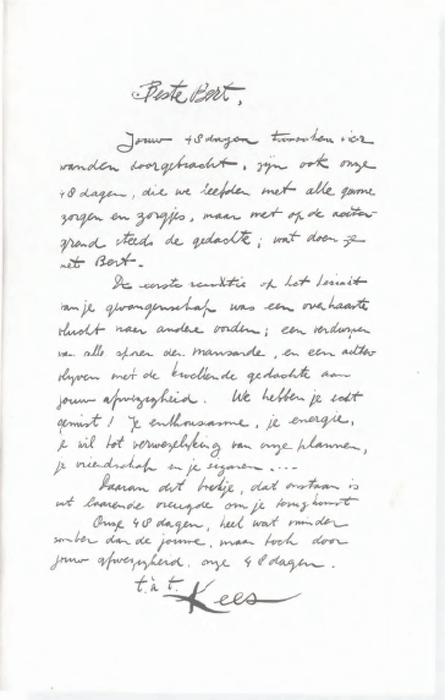 Beste Bert,
Jouw 48 dagen tusschen vier
wanden doorgebracht, zijn ook onze
48 dagen, die we leefden met alle
zorgen en zorgjes, maar met op de achter-
grond steeds de gedachte; wat doen ze
met Bert.
De eerste reaktie op het
van je gevangenschap was een overhaaste
vlucht naar andere oorden; een verdwijnen
van alle sporen der mansarde, en een achter
blijven met de kwellende gedachte aan
jouw afwezigheid. We hebben je echt
gemist! Je enthousiasme, je energie,
je wil tot verwezelijking van onze plannen,
je vriendschap en je sigaren....
Daarom dit boekje, dat ontstaan is
uit laaiende vreugde om je terugkomst
Onze 48 dagen, heel wat minder
somber dan de jouwe, maar toch door
jouw afwezigheid. onze 48 dagen.
t. à t.
Kees